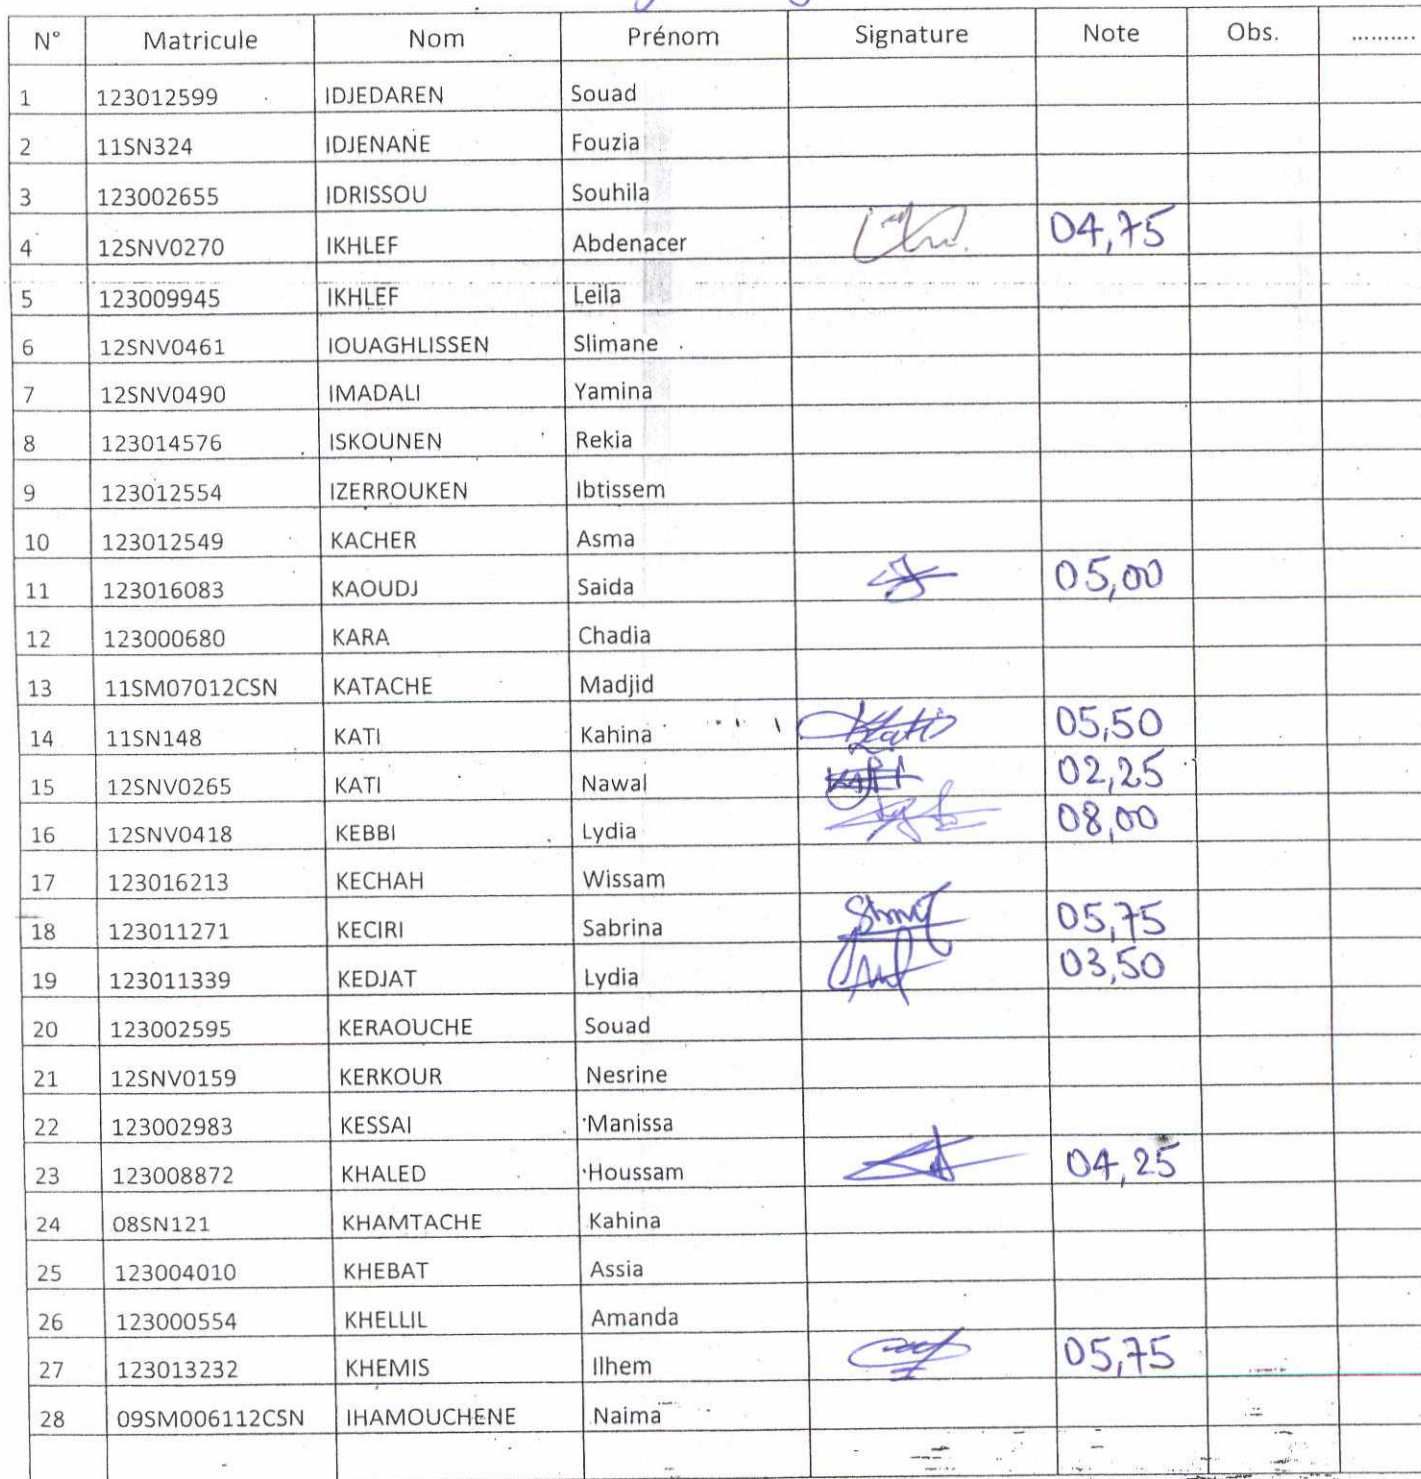 N° Matricule Nom Prénom Signature Note Obs. ..........
1 123012599 IDJEDAREN Souad
2 11SN324 IDJENANE Fouzia
3 123002655 IDRISSOU Souhila
4 12SNV0270 IKHLEF Abdenacer 04,75
5 123009945 IKHLEF Leila
6 12SNV0461 IOUAGHLISSEN Slimane
7 12SNV0490 IMADALI Yamina
8 123014576 ISKOUNEN Rekia
9 123012554 IZERROUKEN Ibtissem
10 123012549 KACHER Asma
11 123016083 KAOUDJ Saida 05,00
12 123000680 KARA Chadia
13 11SM07012CSN KATACHE Madjid
14 11SN148 KATI Kahina 05,50
15 12SNV0265 KATI Nawal 02,25
16 12SNV0418 KEBBI Lydia 08,00
17 123016213 KECHAH Wissam
18 123011271 KECIRI Sabrina 05,75
19 123011339 KEDJAT Lydia 03,50
20 123002595 KERAOUCHE Souad
21 12SNV0159 KERKOUR Nesrine
22 123002983 KESSAI Manissa
23 123008872 KHALED Houssam 04,25
24 08SN121 KHAMTACHE Kahina
25 123004010 KHEBAT Assia
26 123000554 KHELLIL Amanda
27 123013232 KHEMIS Ilhem 05,75
28 09SM006112CSN IHAMOUCHENE Naima